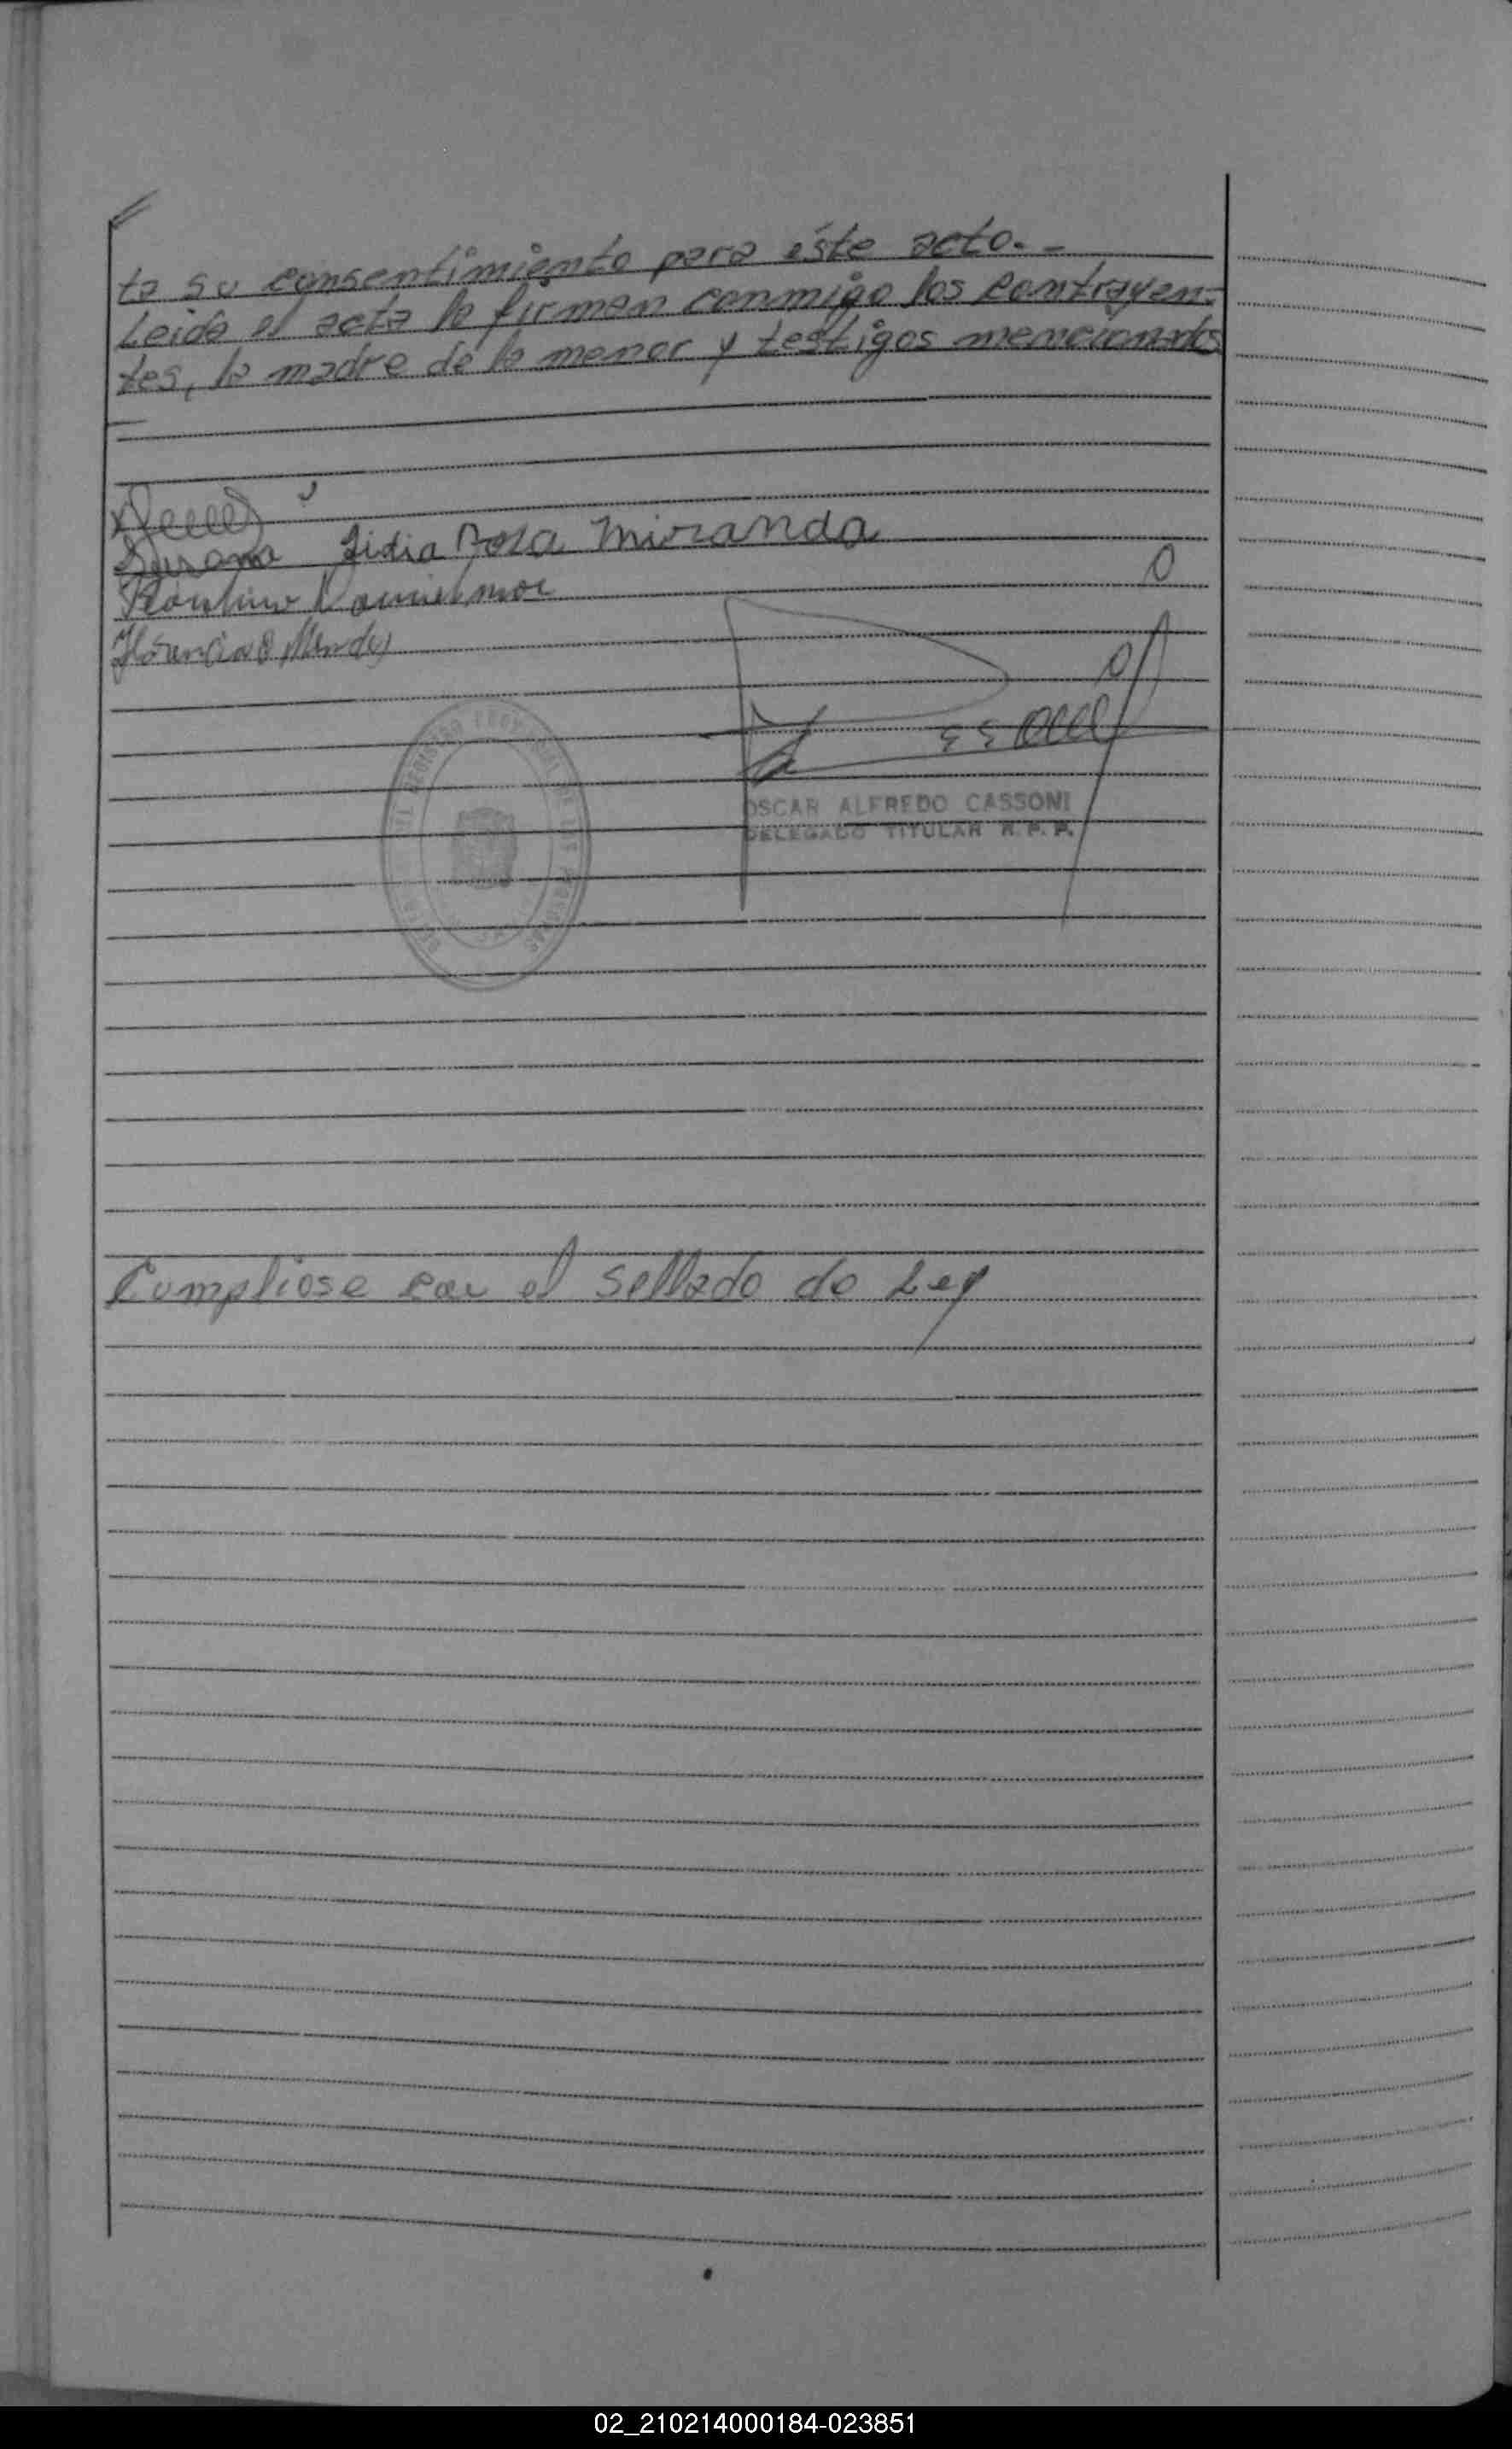 ta su consentimiento para éste acto.-
Leida el acta la firman conmigo los contrayen-
tes, la madre de la menor y testigos mencionados
Susana Lidia Rosa Miranda
OSCAR ALFREDO CASSONI
DELEGADO TITULAR R. P. P.
Cumpliose con el sellado de Ley
02_210214000184-023851